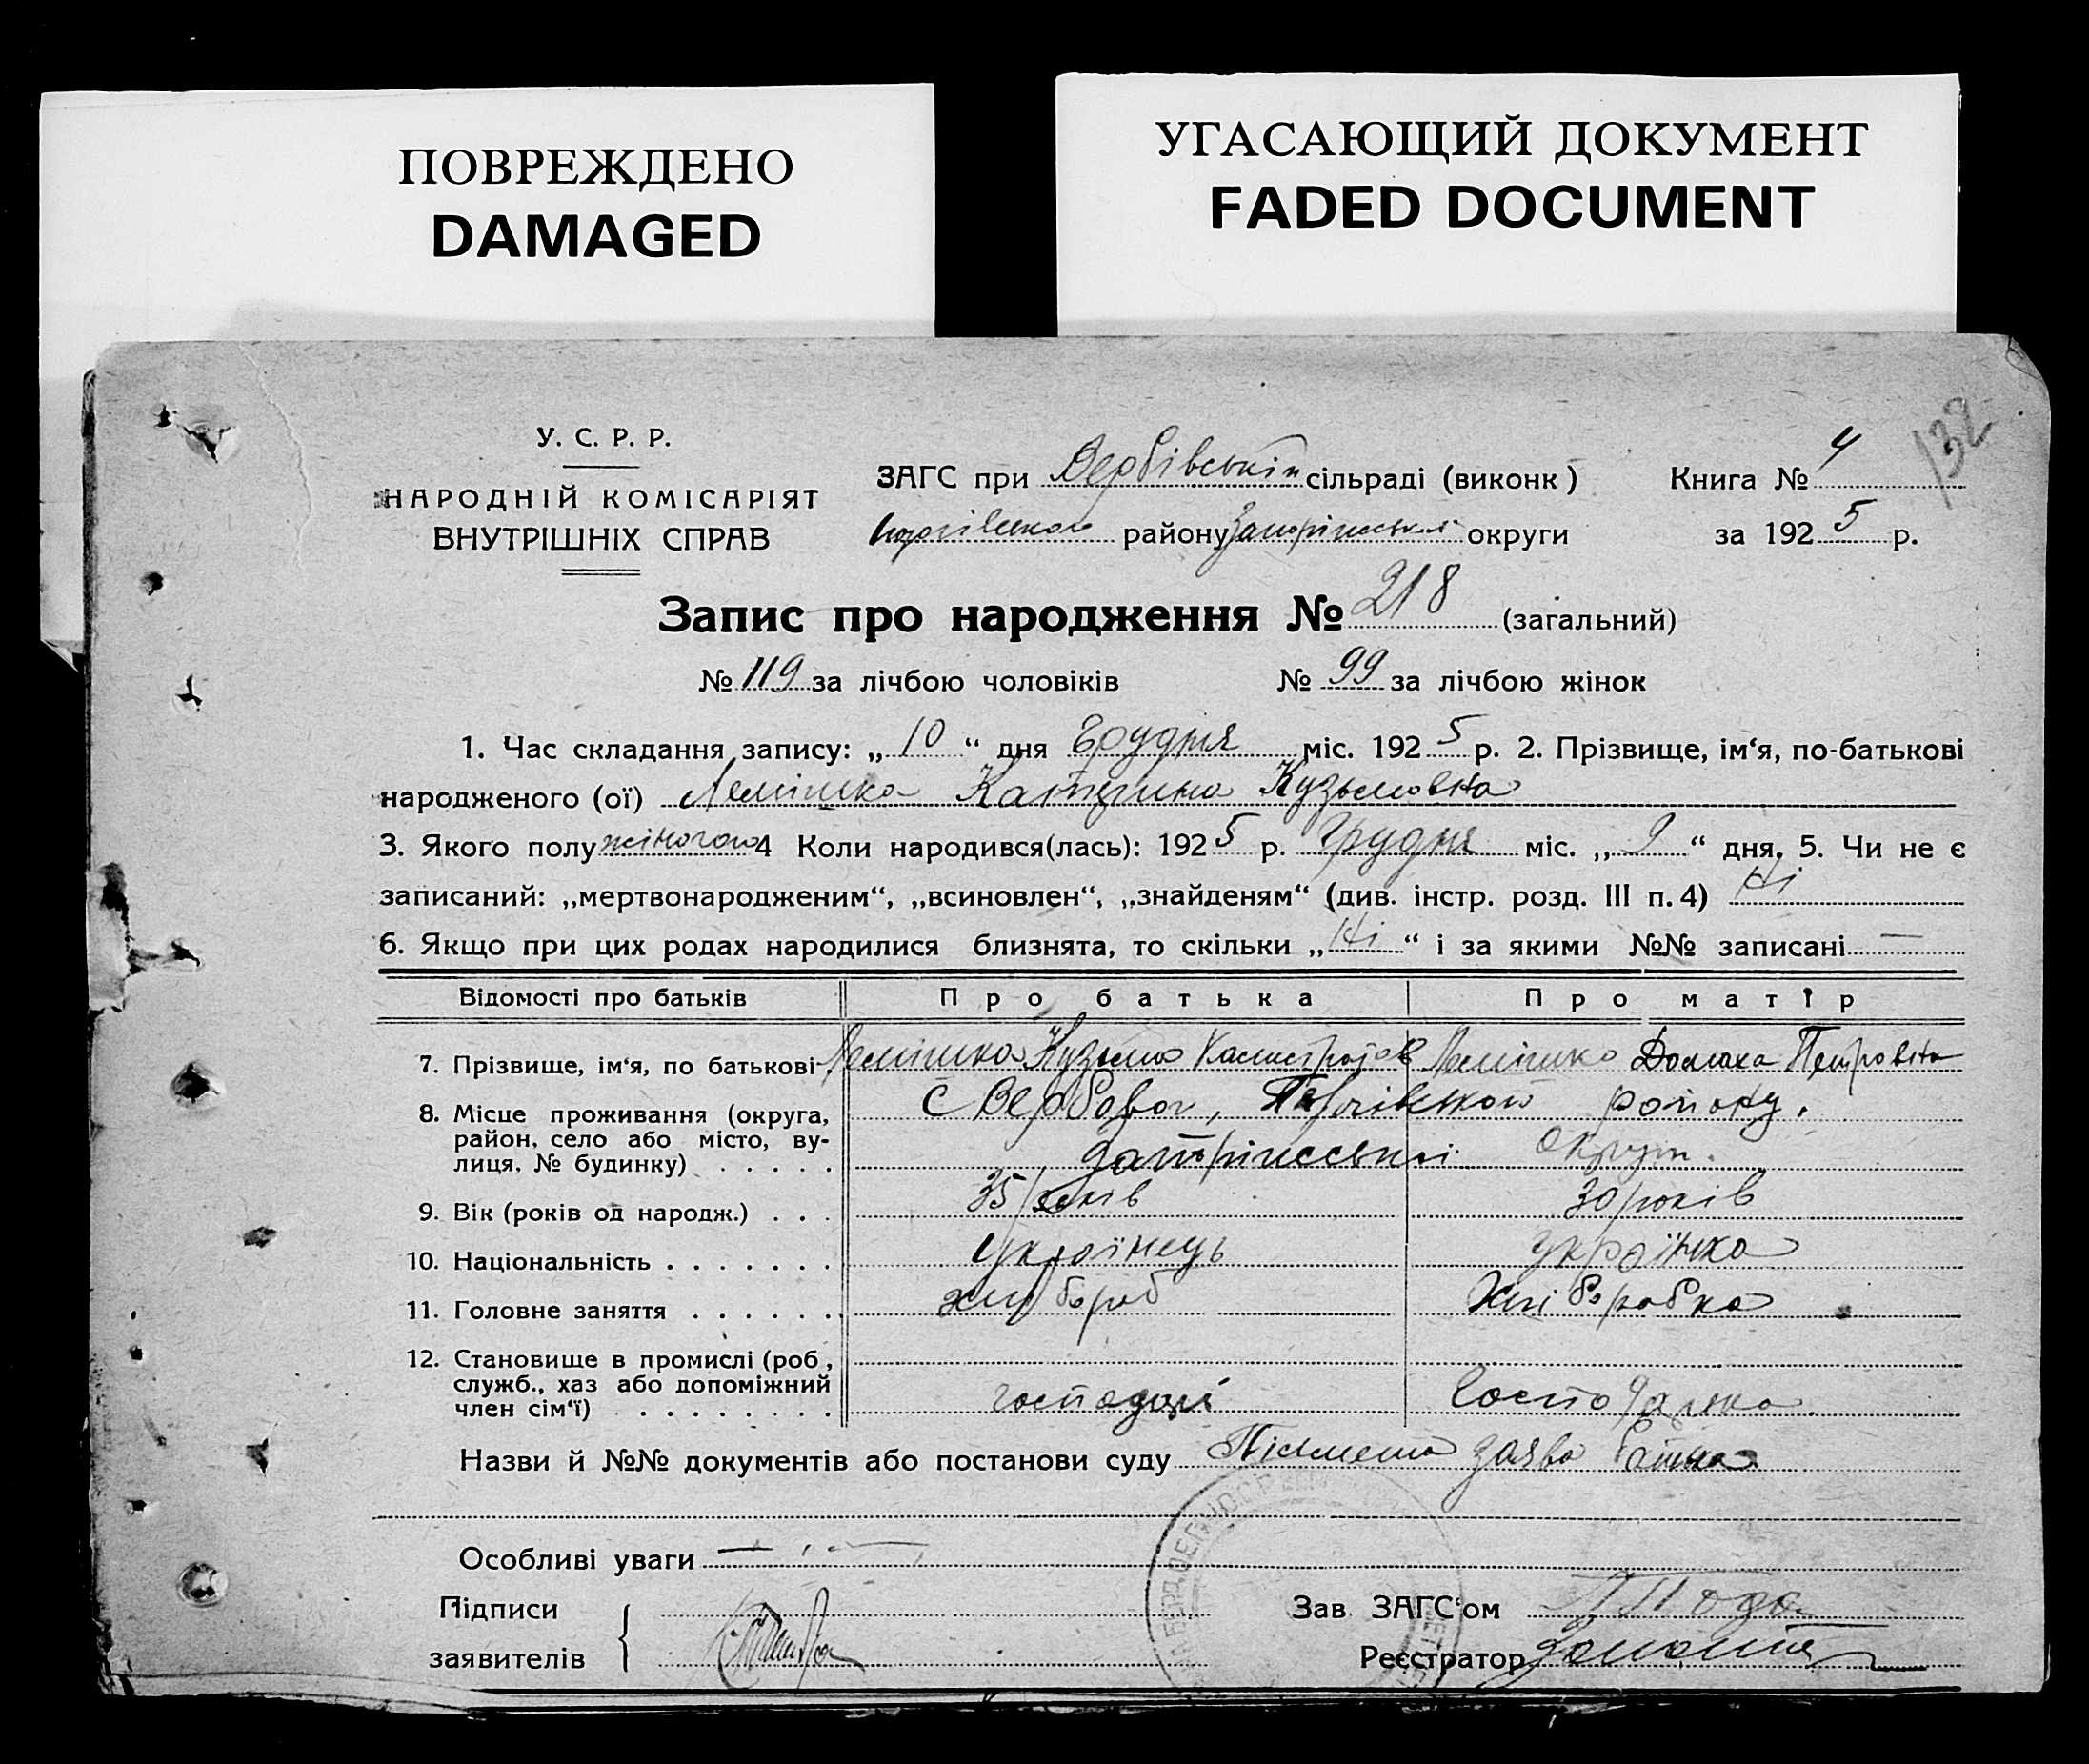 ПОВРЕЖДЕНО
DAMAGED
УГАСАЮЩИЙ ДОКУМЕНТ
FADED DOCUMENT
132
У. С. Р. Р.
НАРОДНІЙ КОМІСАРІЯТ
ВНУТРІШНІХ СПРАВ
ЗАГС при Вербівській сільраді (виконк)
району Запоріжської округи
Книга № 4
за 1925 р.
Запис про народження № 218 (загальний)
№ 119 за лічбою чоловіків № 99 за лічбою жінок
1. Час складання запису: „10“ дня Грудня міс. 1925 р. 2. Прізвище, ім‘я, по-батькові
народженого (ої) Лемішко Катерина Кузьмовна
3. Якого полу жіночого 4 Коли народився(лась): 1925 р. Грудня міс. „9“ дня, 5. Чи не є
записаний: „мертвонародженим“, „всиновлен“, „знайденям“ (див. інстр. розд. III п. 4) Ні
6. Якщо при цих родах народилися близнята, то скільки „Ні“ і за якими №№ записані —
Відомості про батьків Про батька Про матір
7. Прізвище, ім‘я, по батькові Лемішко Кузьма Калистратов Лемішко Домаха Петровна
8. Місце проживання (округа, с Вербово, району.
район, село або місто, ву-
лиця, № будинку) . . . . . Запоріжської Округи.
9. Вік (років од народж.) . . . 35 років 30 років
10. Національність . . . . . . . Українець Українка
11. Головне заняття . . . . . . хлібороб Хліборобка
12. Становище в промислі (роб,
служб., хаз або допоміжний
член сім‘ї) . . . . . . . . господар Господарка.
Назви й №№ документів або постанови суду Пісьмена заява батька
Особливі уваги — , —
Підписи
заявителів
Зав ЗАГС‘ом
Реєстратор